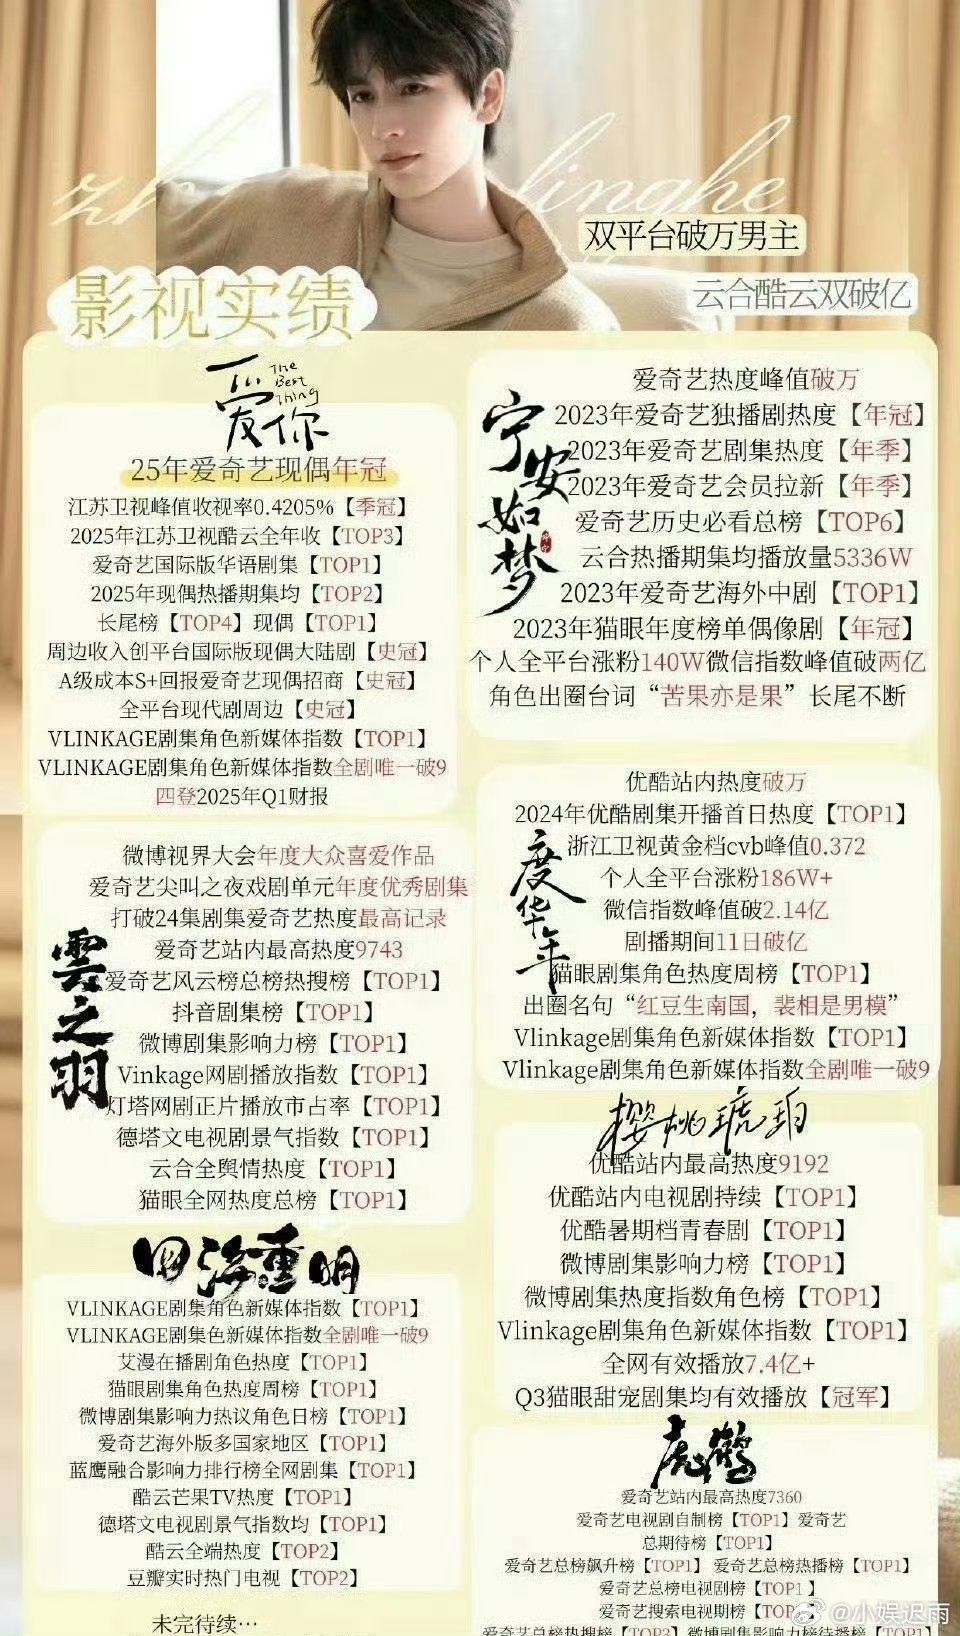 linghe
双平台破万男主
云合酷云双破亿
影视实绩
爱你
The
Best
Thing
25年爱奇艺现偶年冠
江苏卫视峰值收视率0.4205%【季冠】
2025年江苏卫视酷云全年收【TOP3】
爱奇艺国际版华语剧集【TOP1】
2025年现偶热播期集均【TOP2】
长尾榜【TOP4】现偶【TOP1】
周边收入创平台国际版现偶大陆剧【史冠】
A级成本S+回报爱奇艺现偶招商【史冠】
全平台现代剧周边【史冠】
VLINKAGE剧集角色新媒体指数【TOP1】
VLINKAGE剧集角色新媒体指数全剧唯一破9
四登2025年Q1财报
宁安如梦
爱奇艺热度峰值破万
2023年爱奇艺独播剧热度【年冠】
2023年爱奇艺剧集热度【年季】
2023年爱奇艺会员拉新【年季】
爱奇艺历史必看总榜【TOP6】
云合热播期集均播放量5336W
2023年爱奇艺海外中剧【TOP1】
2023年猫眼年度榜单偶像剧【年冠】
个人全平台涨粉140W微信指数峰值破两亿
角色出圈台词“苦果亦是果”长尾不断
雲之羽
微博视界大会年度大众喜爱作品
爱奇艺尖叫之夜戏剧单元年度优秀剧集
打破24集剧集爱奇艺热度最高记录
爱奇艺站内最高热度9743
爱奇艺风云榜总榜热搜榜【TOP1】
抖音剧集榜【TOP1】
微博剧集影响力榜【TOP1】
Vinkage网剧播放指数【TOP1】
灯塔网剧正片播放市占率【TOP1】
德塔文电视剧景气指数【TOP1】
云合全舆情热度【TOP1】
猫眼全网热度总榜【TOP1】
度华年
优酷站内热度破万
2024年优酷剧集开播首日热度【TOP1】
浙江卫视黄金档cvb峰值0.372
个人全平台涨粉186W+
微信指数峰值破2.14亿
剧播期间11日破亿
猫眼剧集角色热度周榜【TOP1】
出圈名句“红豆生南国，裴相是男模”
Vlinkage剧集角色新媒体指数【TOP1】
Vlinkage剧集角色新媒体指数全剧唯一破9
樱桃琥珀
优酷站内最高热度9192
优酷站内电视剧持续【TOP1】
优酷暑期档青春剧【TOP1】
微博剧集影响力榜【TOP1】
微博剧集热度指数角色榜【TOP1】
Vlinkage剧集角色新媒体指数【TOP1】
全网有效播放7.4亿+
Q3猫眼甜宠剧集均有效播放【冠军】
四海重明
VLINKAGE剧集角色新媒体指数【TOP1】
VLINKAGE剧集色新媒体指数全剧唯一破9
艾漫在播剧角色热度【TOP1】
猫眼剧集角色热度周榜【TOP1】
微博剧集影响力热议角色日榜【TOP1】
爱奇艺海外版多国家地区【TOP1】
蓝鹰融合影响力排行榜全网剧集【TOP1】
酷云芒果TV热度【TOP1】
德塔文电视剧景气指数均【TOP1】
酷云全端热度【TOP2】
豆瓣实时热门电视【TOP2】
未完待续…
虎鹤
爱奇艺站内最高热度7360
爱奇艺电视剧自制榜【TOP1】爱奇艺
总期待榜【TOP1】
爱奇艺总榜飙升榜【TOP1】 爱奇艺总榜热播榜【TOP1】
爱奇艺总榜电视剧榜【TOP1 】
爱奇艺搜索电视期榜
爱奇艺总榜热搜榜【TOP3】微博剧集影响力榜待播榜【TOP1】
@小娱迟雨